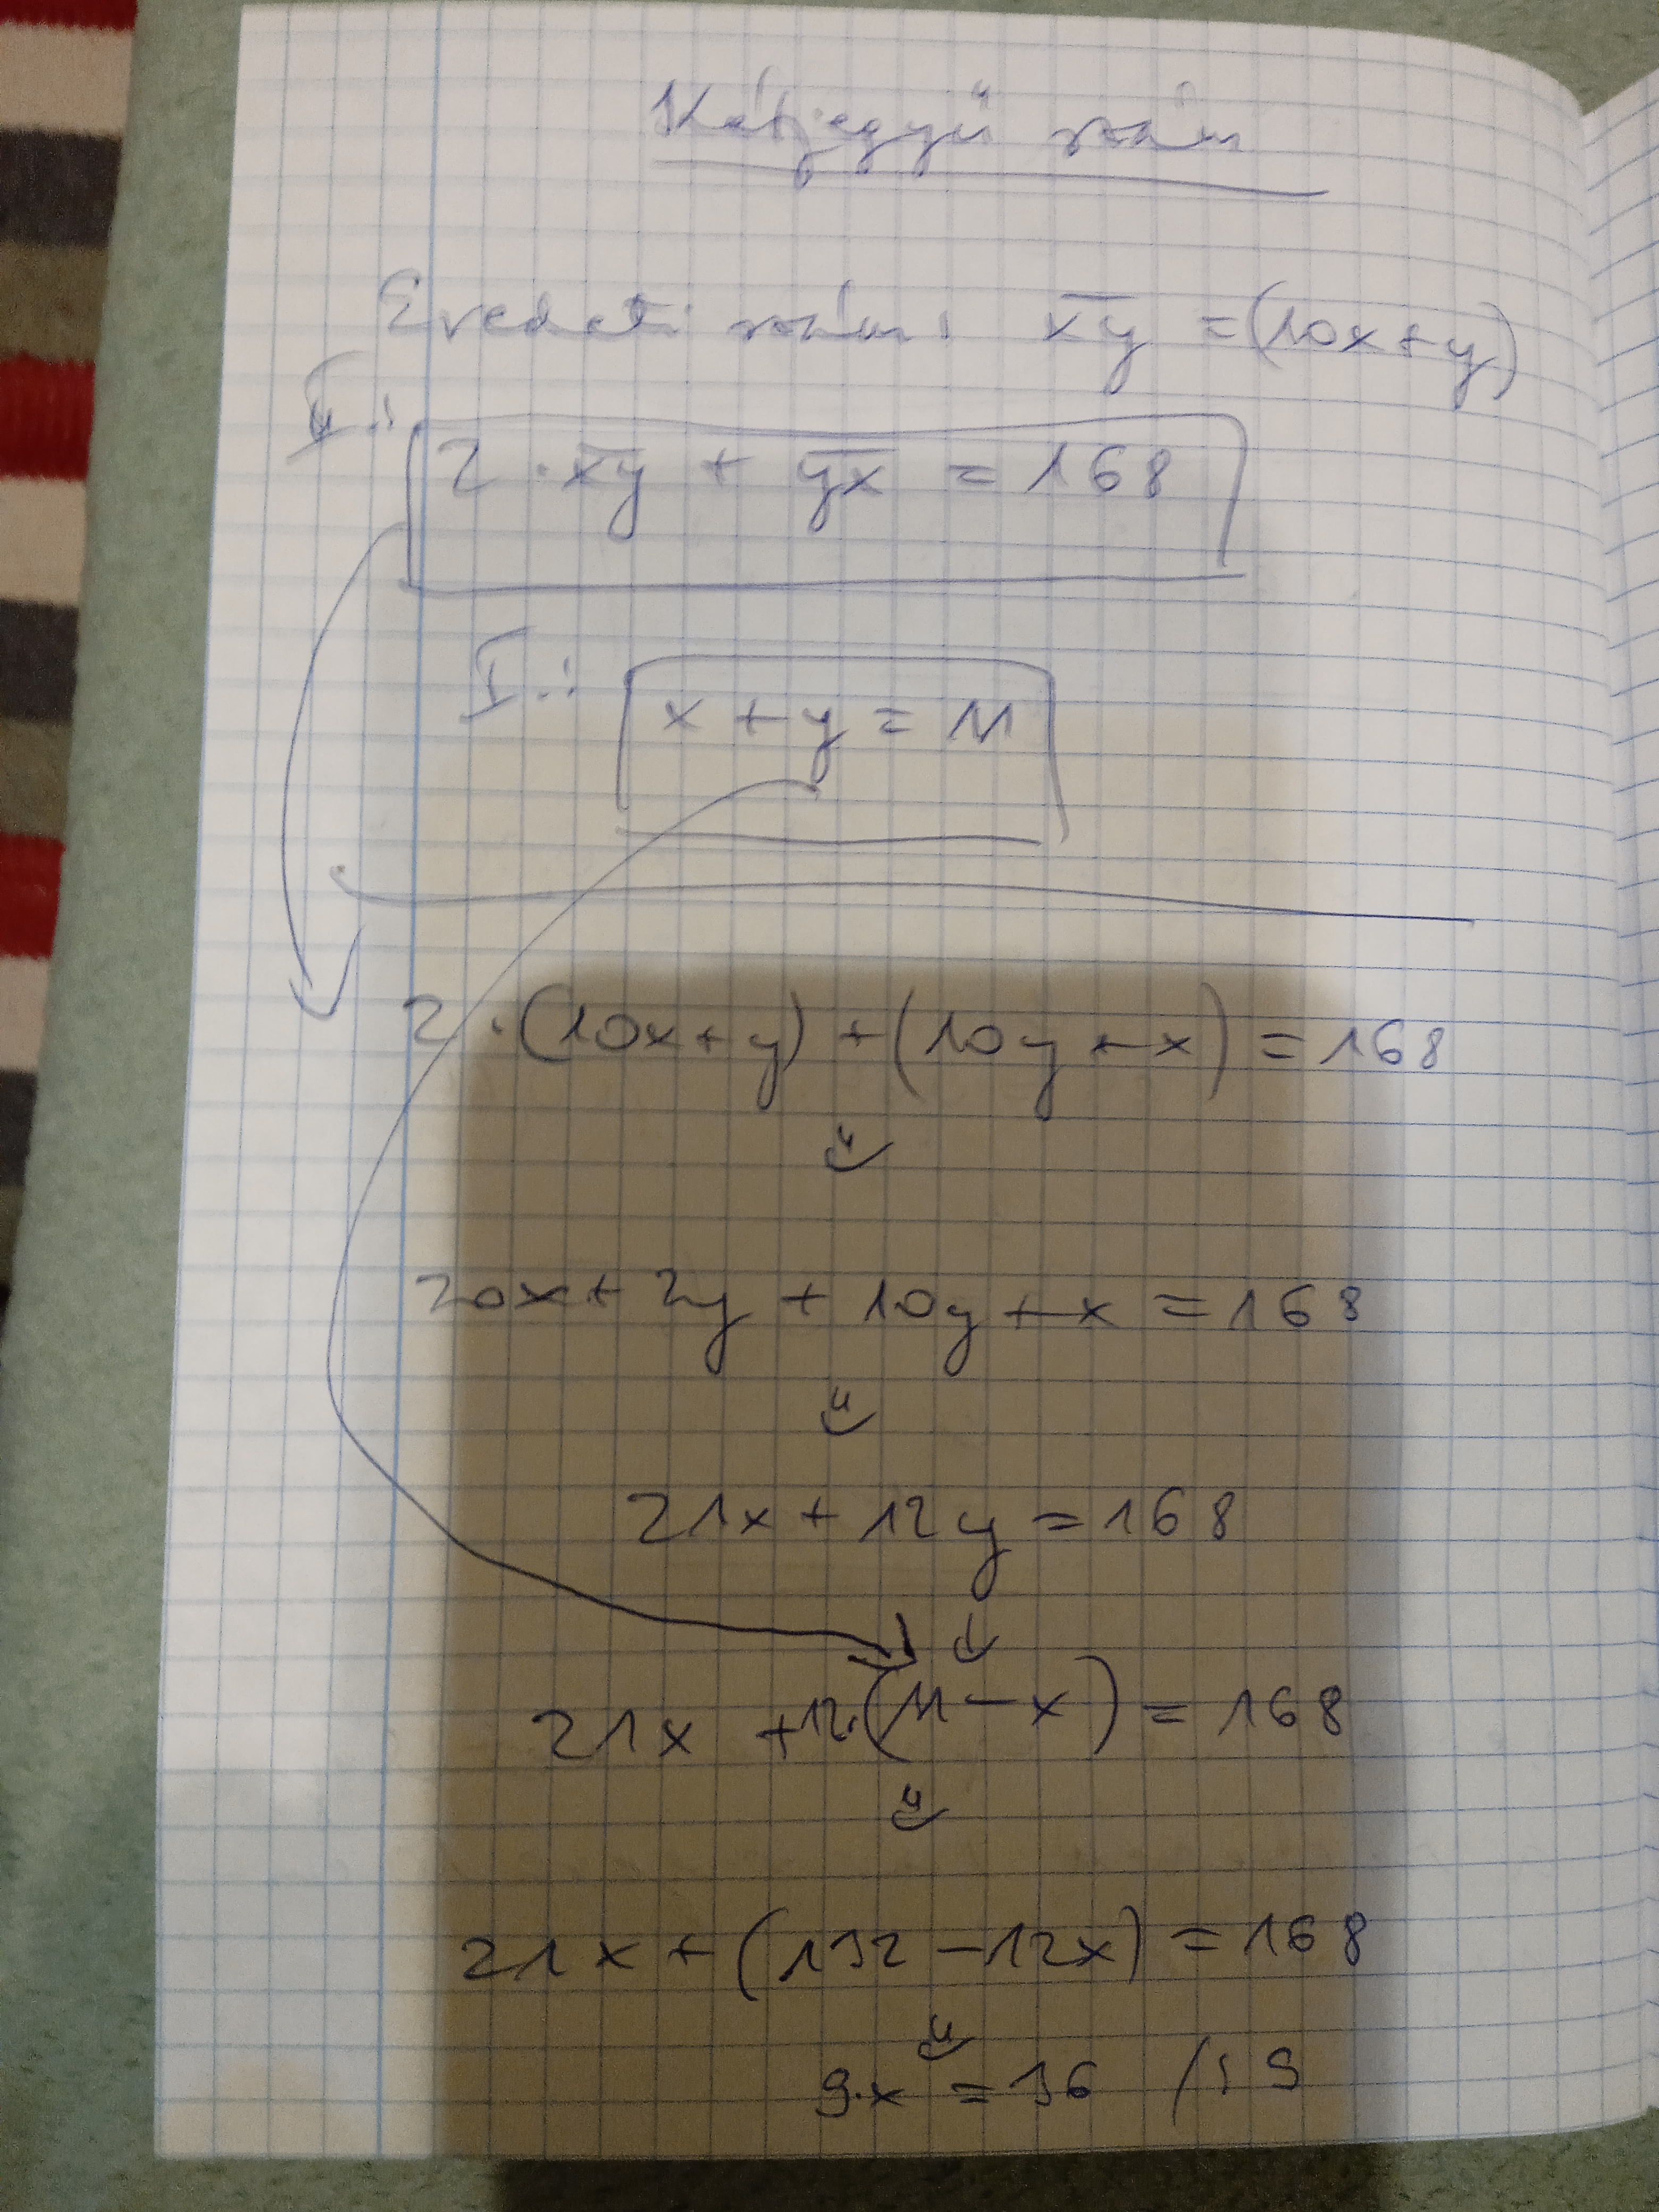 Kétjegyű szám
Eredeti szám: x̅y̅ = (10x+y)
II.: 2 · x̅y̅ + y̅x̅ = 168
I.: x + y = 11
2 · (10x+y) + (10y+x) = 168
⇓
20x + 2y + 10y + x = 168
⇓
21x + 12y = 168
↓
21x + 12·(11 - x) = 168
⇓
21x + (132 - 12x) = 168
⇓
9·x = 36 /:9